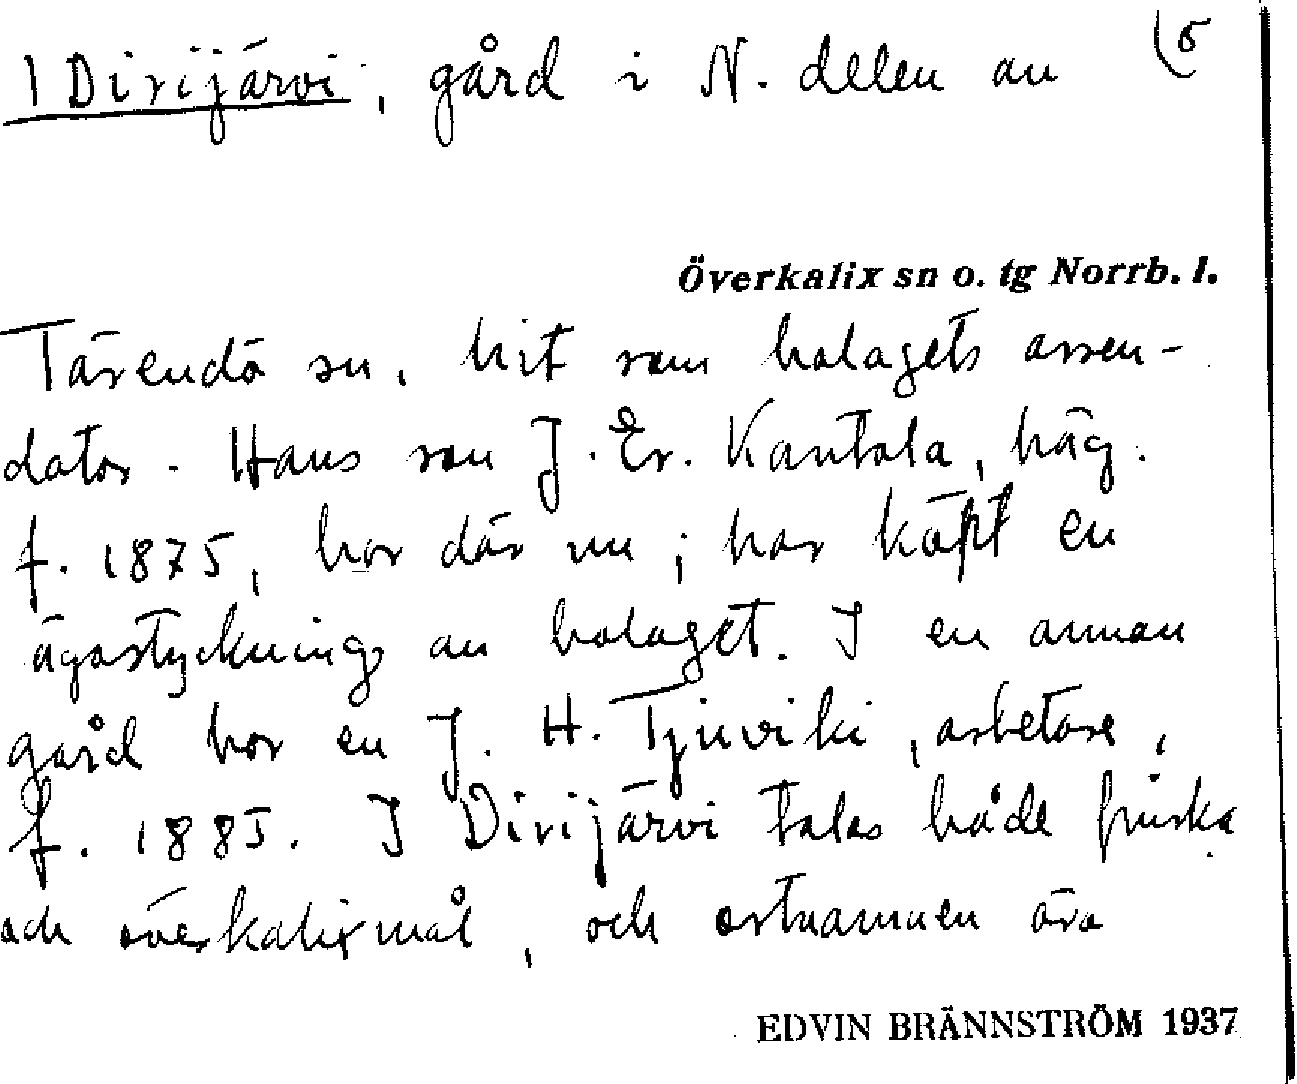 1 Dirijärvi, gård i N. delen av (5
Överkalix sn o. tg Norrb. l.
Tärendö sn, hit som bolagets arren-
dator. Hans son J. Er. Kantola, häg.
f. 1875, bor där nu; har köpt en
ägostyckning av bolaget. I en annan
gård bor en J. H. , arbetare,
f. 1885. I Dirijärvi talas både finska
och överkalixmål, och ortnamnen äro
EDVIN BRÄNNSTRÖM 1937